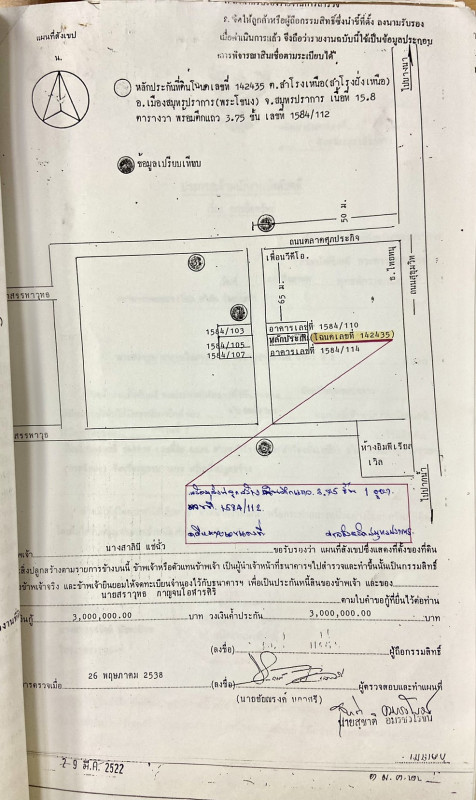 จ. จัดให้ลูกค้าหรือผู้ถือกรรมสิทธิ์ซึ่งนำชี้ที่ตั้ง ลงนามรับรอง
เมื่อดำเนินการแล้ว จึงถือว่ารายงานฉบับนี้ใช้เป็นข้อมูลประกอบ
การพิจารณาสินเชื่อตามระเบียบได้
แผนที่สังเขป
น.
หลักประกันที่ดินโฉนดเลขที่ 142435 ต.สำโรงเหนือ(สำโรงฝั่งเหนือ)
อ.เมืองสมุทรปราการ(พระโขนง) จ.สมุทรปราการ เนื้อที่ 15.8
ตารางวา พร้อมตึกแถว 3.75 ชั้น เลขที่ 1584/112
ข้อมูลเปรียบเทียบ
ไปบางนา
50 ม.
ถนนตลาดศุภประกิจ
เพื่อนวีดีโอ.
ธ.ไทยทนุ
ถนนสุขุมวิท
65 ม.
าสรรพาวุธ
1584/103
1584/105
1584/107
อาคารเลขที่ 1584/110
หลักประกัน (โฉนดเลขที่ 142435)
อาคารเลขที่ 1584/114
าสรรพาวุธ
ห้างอิมพีเรียล
เวิล
ไปปากน้ำ
3.75 ชั้น 1
1584/112
นางสาลินี แซ่ฉั่ว
ขอรับรองว่า แผนที่สังเขปซึ่งแสดงที่ตั้งของที่ดิน
สิ่งปลูกสร้างตามรายการข้างบนนี้ ข้าพเจ้าหรือตัวแทนข้าพเจ้า เป็นผู้นำเจ้าหน้าที่ธนาคารฯไปสำรวจและทำขึ้นนั้นเป็นกรรมสิทธิ์
ข้าพเจ้าจริง และข้าพเจ้ายินยอมให้จดทะเบียนจำนองไว้กับธนาคารฯ เพื่อเป็นประกันหนี้สินของข้าพเจ้า และของ
นายสราวุทธ กาญจนโอฬารศิริ ตามใบคำขอกู้ที่ยื่นไว้ต่อท่าน
3,000,000.00 บาท วงเงินค้ำประกัน 3,000,000.00 บาท
(ลงชื่อ) ผู้ถือกรรมสิทธิ์
26 พฤษภาคม 2538 (ลงชื่อ) ผู้ตรวจสอบและทำแผนที่
2 9 มี.ค. 2522